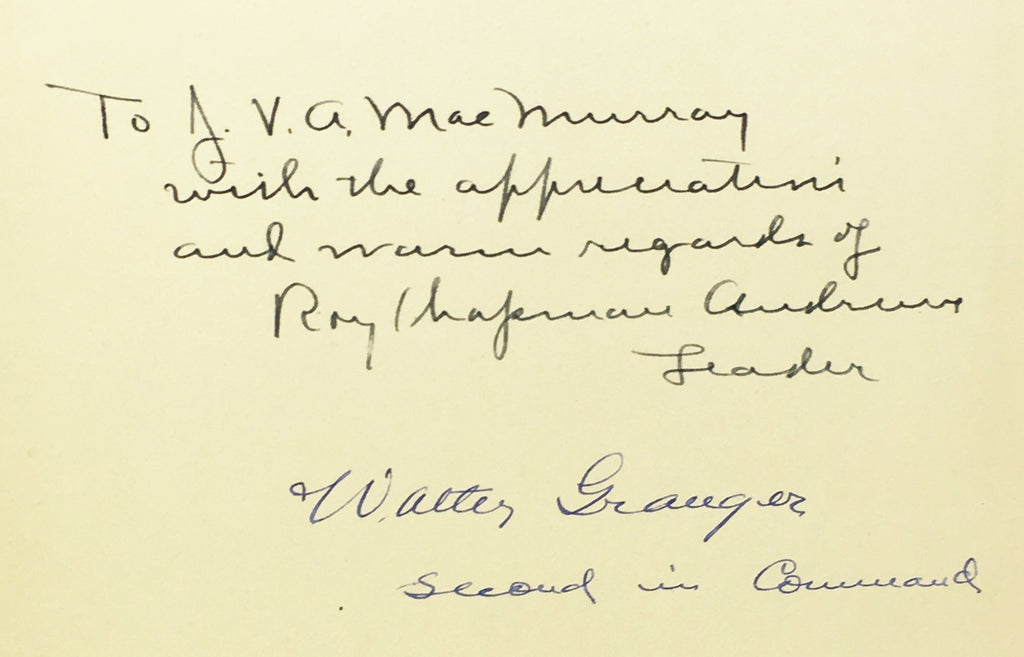 To J. V. A. MacMurray
with the appreciation
and warm regards of
Roy Chapman Andrews
Leader
Walter Granger
Second in Command